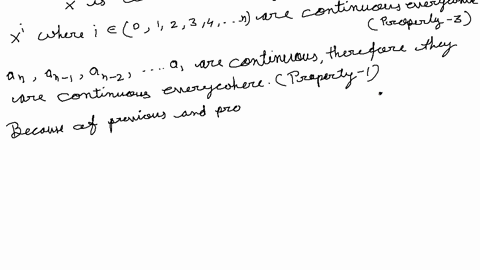 x is
x^i where i ∈ (0, 1, 2, 3, 4, ...n) are continuous everywhere
(Property-3)
a_n, a_{n-1}, a_{n-2}, .... a, are continuous, therefore they
are continuous everywhere. (Property-1)
Because of previous and pro